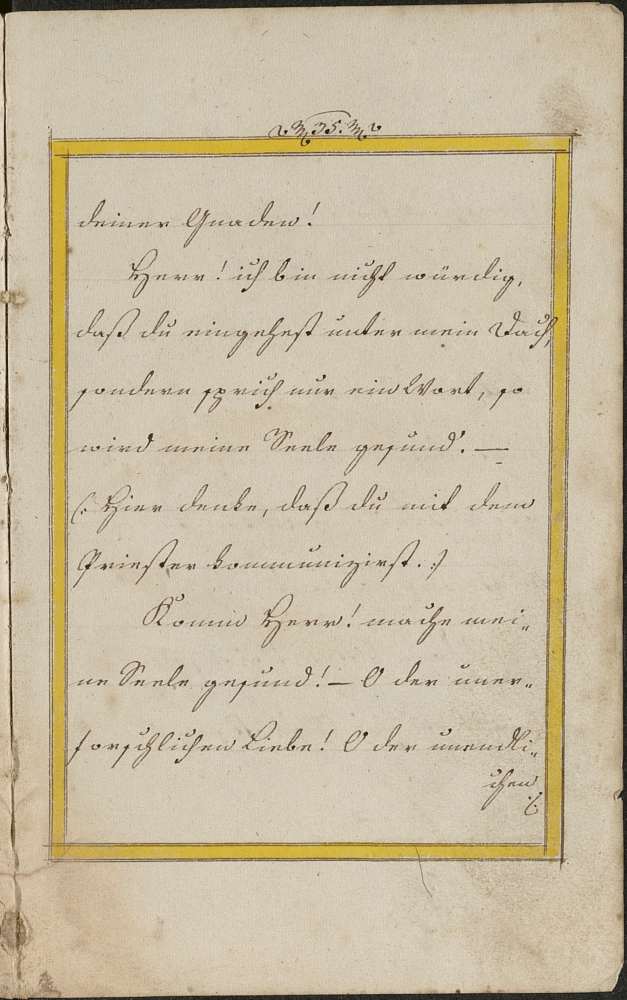 35.
deiner Gnaden!
Herr! ich bin nicht würdig,
daß du eingehest unter mein Dach,
sondern sprich nur ein Wort, so
wird meine Seele gesund. —
(: Hier denke, daß du mit dem
Priester kommunizirst. :)
Komm Herr! mache mei„
ne Seele gesund! — O der uner„
forschlichen Liebe! O der unendli„
chen